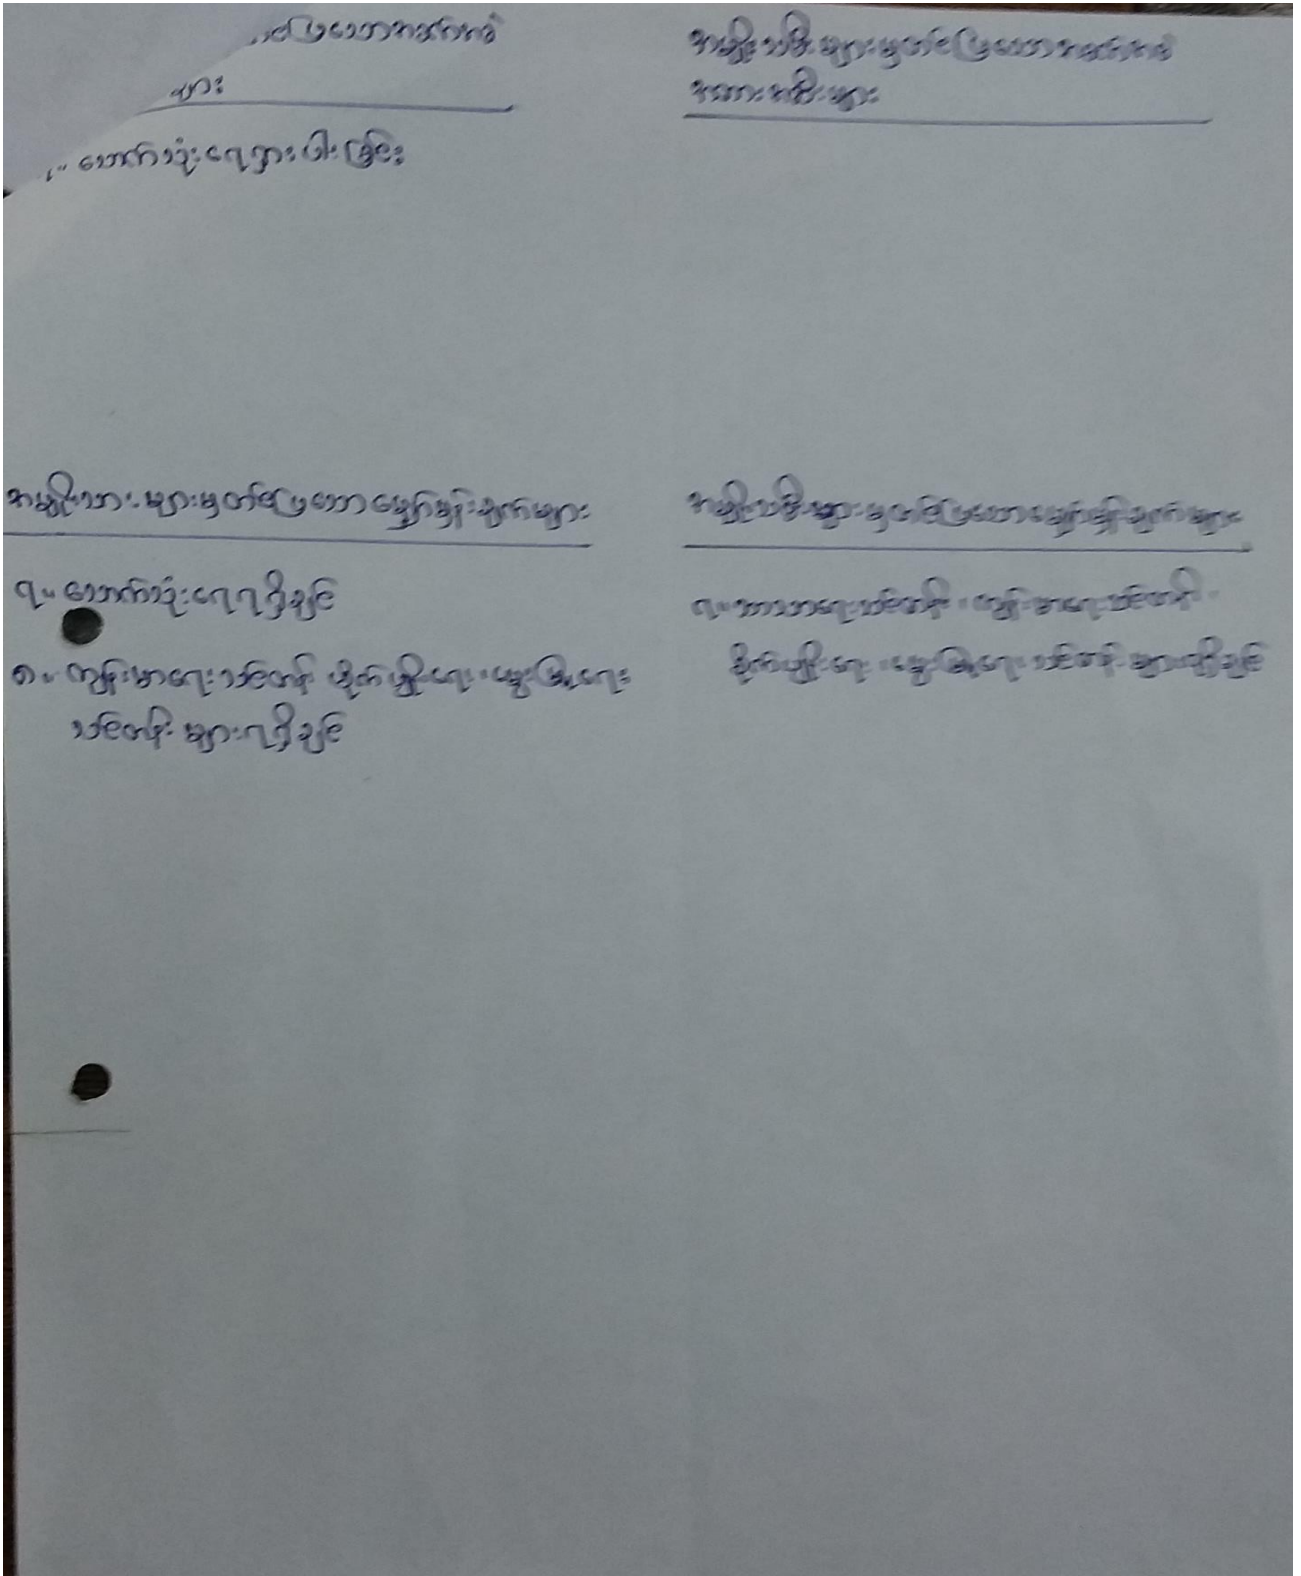 တင်ပြသောအခက်အခဲ
များ
သောက်သုံးရေရှားပါးခြင်း
အမျိုးသမီးများမှတင်ပြသောအခက်အခဲ
အတားအဆီးများ
အမျိုးသားများမှတင်ပြသောမျှော်မှန်းချက်များ
၇။ သောက်သုံးရေရရှိချင်
၈။ ကျန်းမာရေးသင်တန်း၊ စိုက်ပျိုးရေး၊ မွေးမြူရေး
သင်တန်းများရရှိချင်
အမျိုးသမီးများမှတင်ပြသောမျှော်မှန်းချက်များ
၇။ ဘာသာရေးသင်တန်း၊ ကျန်းမာရေးသင်တန်း၊
စိုက်ပျိုးရေး၊ မွေးမြူရေးသင်တန်းများရရှိချင်